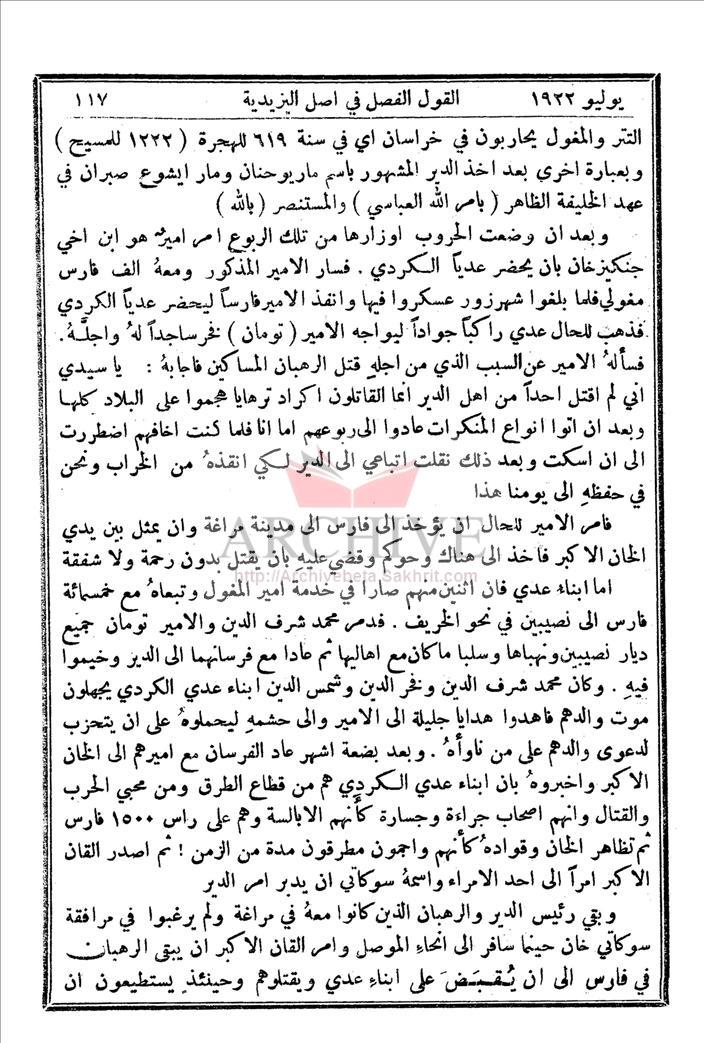 يوليو ١٩٢٢ القول الفصل في اصل اليزيدية ١١٧
التتر والمغول يحاربون في خراسان اي في سنة ٦١٩ للهجرة ( ١٢٢٢ للمسيح )
وبعبارة اخرى بعد اخذ الدير المشهور باسم مار يوحنان ومار ايشوع صبران في
عهد الخليفة الظاهر ( بامر الله العباسي ) والمستنصر ( بالله )
وبعد ان وضعت الحروب اوزارها من تلك الربوع امر اميرٌ هو ابن اخي
جنكيزخان بان يحضر عدياً الكردي . فسار الامير المذكور ومعهُ الف فارس
مغولي فلما بلغوا شهرزور عسكروا فيها وانفذ الامير فارساً ليحضر عدياً الكردي
فذهب للحال عدي راكباً جواداً ليواجه الامير ( تومان ) فخر ساجداً لهُ واجلَّهُ .
فسألهُ الامير عن السبب الذي من اجلهِ قتل الرهبان المساكين فاجابهُ : يا سيدي
اني لم اقتل احداً من اهل الدير انما القاتلون اكراد ترهايا هجموا على البلاد كلها
وبعد ان اتوا انواع المنكرات عادوا الى ربوعهم اما انا فلما كنت اخافهم اضطررت
الى ان اسكت وبعد ذلك نقلت اتباعي الى الدير لكي انقذهُ من الخراب ونحن
في حفظهِ الى يومنا هذا
فامر الامير للحال ان يؤخذ الى فارس الى مدينة مراغة وان يمثل بين يدي
الخان الاكبر فاخذ الى هناك وحوكم وقضي عليهِ بان يقتل بدون رحمة ولا شفقة
ARCHIVE
http://Archivebeta.Sakhrit.com
اما ابناء عدي فان اثنين منهم صارا في خدمة امير المغول وتبعاهُ مع خمسمائة
فارس الى نصيبين في نحو الخريف . فدمر محمد شرف الدين والامير تومان جميع
ديار نصيبين ونهباها وسلبا ما كان مع اهاليها ثم عادا مع فرسانهما الى الدير وخيموا
فيهِ . وكان محمد شرف الدين وفخر الدين وشمس الدين ابناء عدي الكردي يجهلون
موت والدهم فاهدوا هدايا جليلة الى الامير والى حشمهِ ليحملوهُ على ان يتحزب
لدعوى والدهم على من ناوأهُ . وبعد بضعة اشهر عاد الفرسان مع اميرهم الى الخان
الاكبر واخبروهُ بان ابناء عدي الكردي هم من قطاع الطرق ومن محبي الحرب
والقتال وانهم اصحاب جراءة وجسارة كأنهم الابالسة وهم على راس ١٥٠٠ فارس
ثم تظاهر الخان وقوادهُ كأنهم واجمون مطرقون مدة من الزمن ! ثم اصدر القان
الاكبر امراً الى احد الامراء واسمهُ سوكاتي ان يدبر امر الدير
وبقي رئيس الدير والرهبان الذين كانوا معهُ في مراغة ولم يرغبوا في مرافقة
سوكاتي خان حينما سافر الى انحاء الموصل وامر القان الاكبر ان يبقى الرهبان
في فارس الى ان يُقبَضَ على ابناءِ عدي ويقتلوهم وحينئذٍ يستطيعون ان